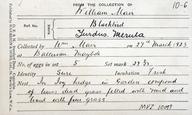 FROM THE COLLECTION OF
10-6
William Marr
Blackbird
Turdus Merula
Collected by Wm. Marr on 27th March 1923
at
No. of eggs in set 5 Set mark 27/
Identity Sure Incubation Fresh
Nest In Ivy hedge in Garden composed
of leaves dead grass filled with mud and
lined with fine grass
MVZ